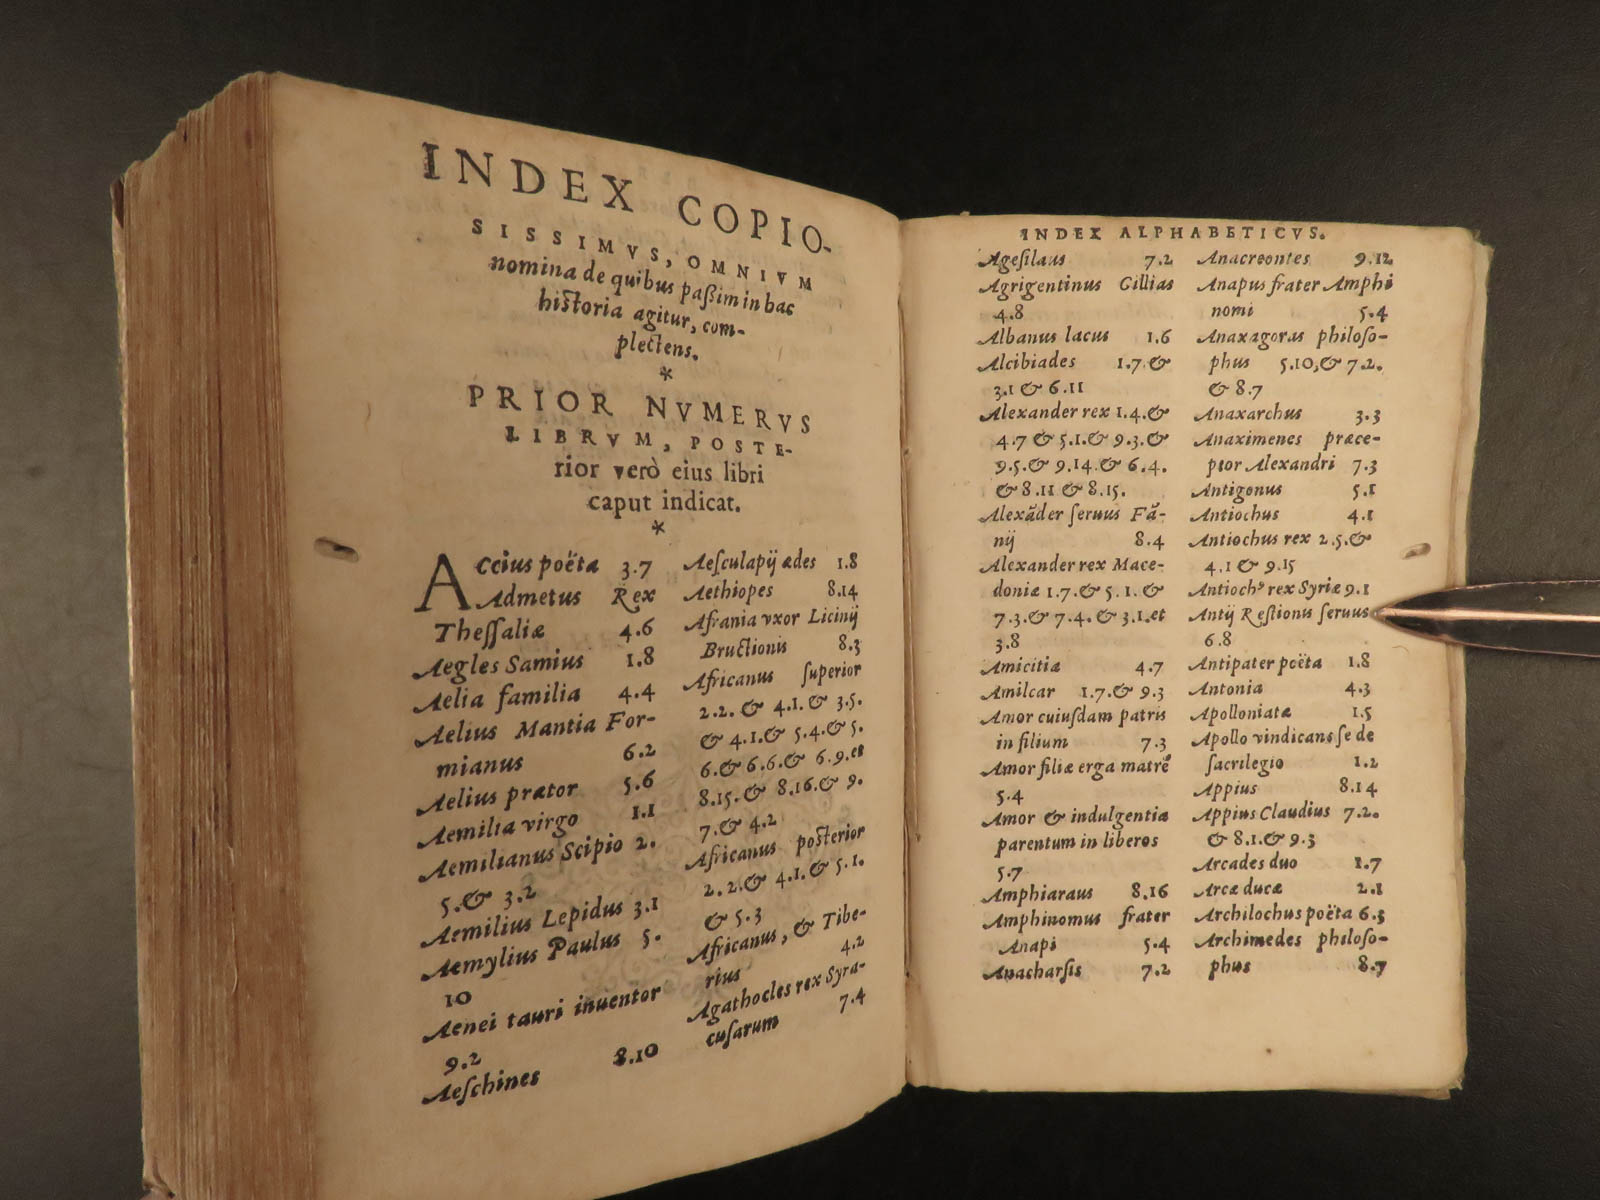 INDEX COPIO-
SISSIMVS, OMNIVM
nomina de quibus paßim in hac
historia agitur, com-
plectens.
*
PRIOR NVMERVS
LIBRVM, POSTE-
rior verò eius libri
caput indicat.
*
ACcius poëta 3.7
Admetus Rex
Thessaliæ 4.6
Aegles Samius 1.8
Aelia familia 4.4
Aelius Mantia For-
mianus 6.2
Aelius prætor 5.6
Aemilia virgo 1.1
Aemilianus Scipio 2.
5.& 3.2
Aemilius Lepidus 3.1
Aemylius Paulus 5.
10
Aenei tauri inuentor
9.2
Aeschines 8.10
Aesculapij ædes 1.8
Aethiopes 8.14
Afrania vxor Licinij
Bructionis 8.3
Africanus superior
2.2.& 4.1.& 3.5.
& 4.1.& 5.4.& 5.
6.& 6.6.& 6.9.et
8.15.& 8.16.& 9.
7.& 4.2
Africanus posterior
2.2.& 4.1.& 5.1.
& 5.3
Africanus, & Tibe-
rius 4.2
Agathocles rex Syra-
cusarum 7.4
INDEX ALPHABETICVS.
Agesilaus 7.2
Agrigentinus Gillias
4.8
Albanus lacus 1.6
Alcibiades 1.7.&
3.1 & 6.11
Alexander rex 1.4.&
4.7 & 5.1.& 9.3.&
9.5.& 9.14.& 6.4.
& 8.11 & 8.15.
Alexãder seruus Fã-
nij 8.4
Alexander rex Mace-
doniæ 1.7.& 5.1.&
7.3.& 7.4.& 3.1.et
3.8
Amicitia 4.7
Amilcar 1.7.& 9.3
Amor cuiusdam patris
in filium 7.3
Amor filiæ erga matrẽ
5.4
Amor & indulgentia
parentum in liberos
5.7
Amphiaraus 8.16
Amphinomus frater
Anapi 5.4
Anacharsis 7.2
Anacreontes 9.12
Anapus frater Amphi
nomi 5.4
Anaxagoras philoso-
phus 5.10,& 7.2.
& 8.7
Anaxarchus 3.3
Anaximenes præce-
ptor Alexandri 7.3
Antigonus 5.1
Antiochus 4.1
Antiochus rex 2.5.&
4.1 & 9.15
Antioch⁹ rex Syriæ 9.1
Antij Restionis seruus
6.8
Antipater poëta 1.8
Antonia 4.3
Apolloniatæ 1.5
Apollo vindicans se de
sacrilegio 1.2
Appius 8.14
Appius Claudius 7.2.
& 8.1.& 9.3
Arcades duo 1.7
Arcæ ducæ 2.1
Archilochus poëta 6.3
Archimedes philoso-
phus 8.7